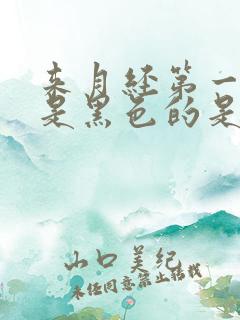 来月经第一
是黑色的是
山口美纪
未经同意禁止转载